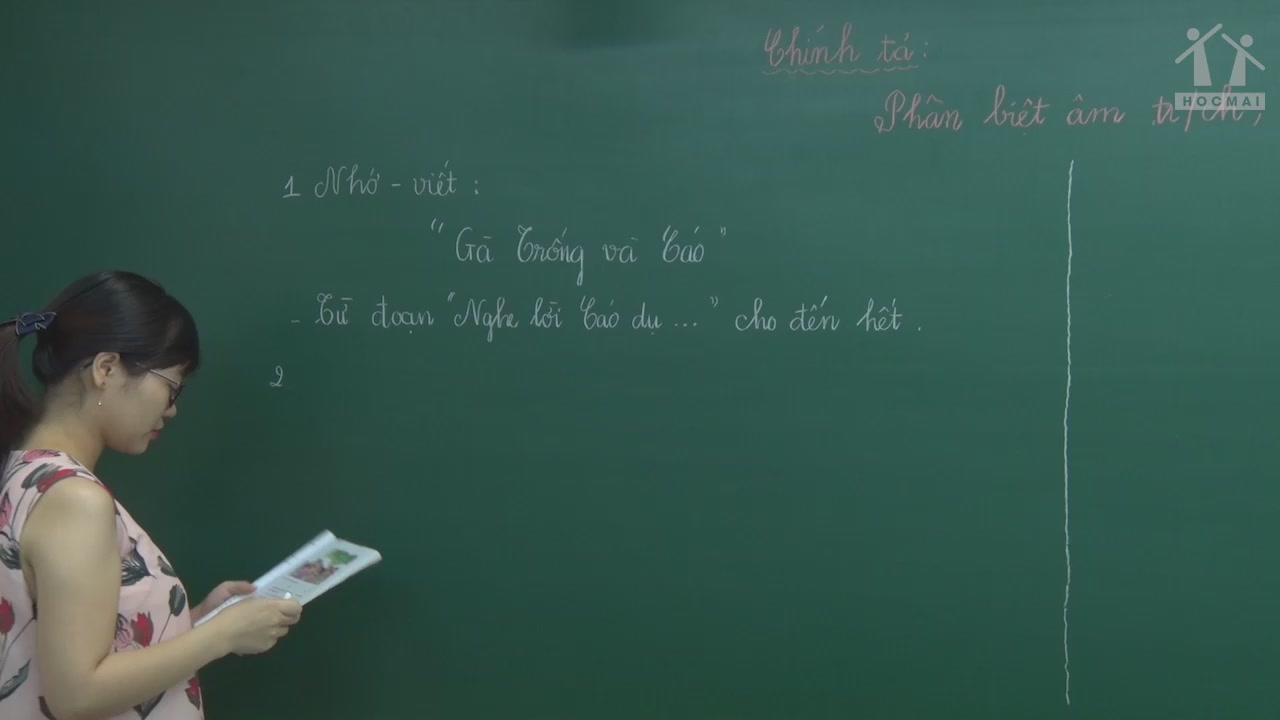 Chính tả:
HOCMAI
Phân biệt âm tr/ch,
1 Nhớ - viết :
“ Gà Trống và Cáo ”
- Từ đoạn “Nghe lời Cáo dụ ... ” cho đến hết .
2